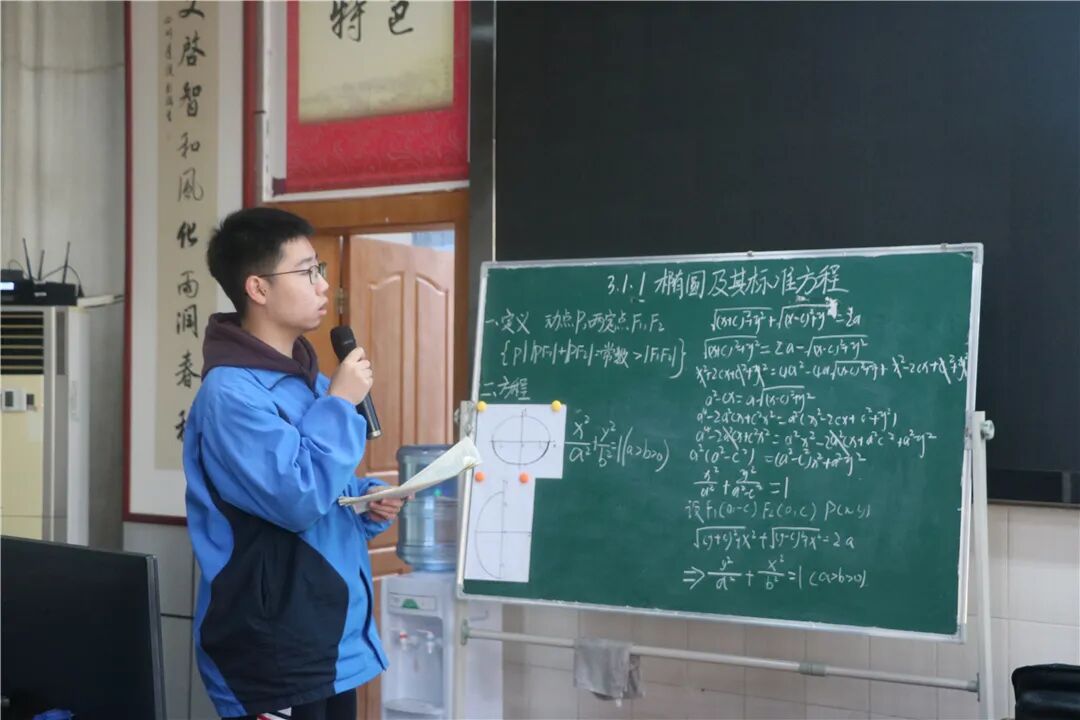 特色
启智和风化雨润春
3.1.1 椭圆及其标准方程
一、定义 动点P,两定点F₁,F₂
{P||PF₁|+|PF₂|=常数>|F₁F₂|}
二、方程
x²/a²+y²/b²=1(a>b>0)
√(x+c)²+y²+√(x-c)²+y²=2a
√(x+c)²+y²=2a-√(x-c)²+y²
x²+2cx+c²+y²=4a²-4a√(x-c)²+y²+x²-2cx+c²+y²
a²-cx=a√(x-c)²+y²
a⁴-2a²cx+c²x²=a²(x²-2cx+c²+y²)
a⁴-2a²cx+c²x²=a²x²-2a²cx+a²c²+a²y²
a²(a²-c²)=(a²-c²)x²+a²y²
x²/a²+y²/a²-c²=1
设F₁(0,-c) F₂(0,c) P(x,y)
√(y+c)²+x²+√(y-c)²+x²=2a
⇒y²/a²+x²/b²=1(a>b>0)